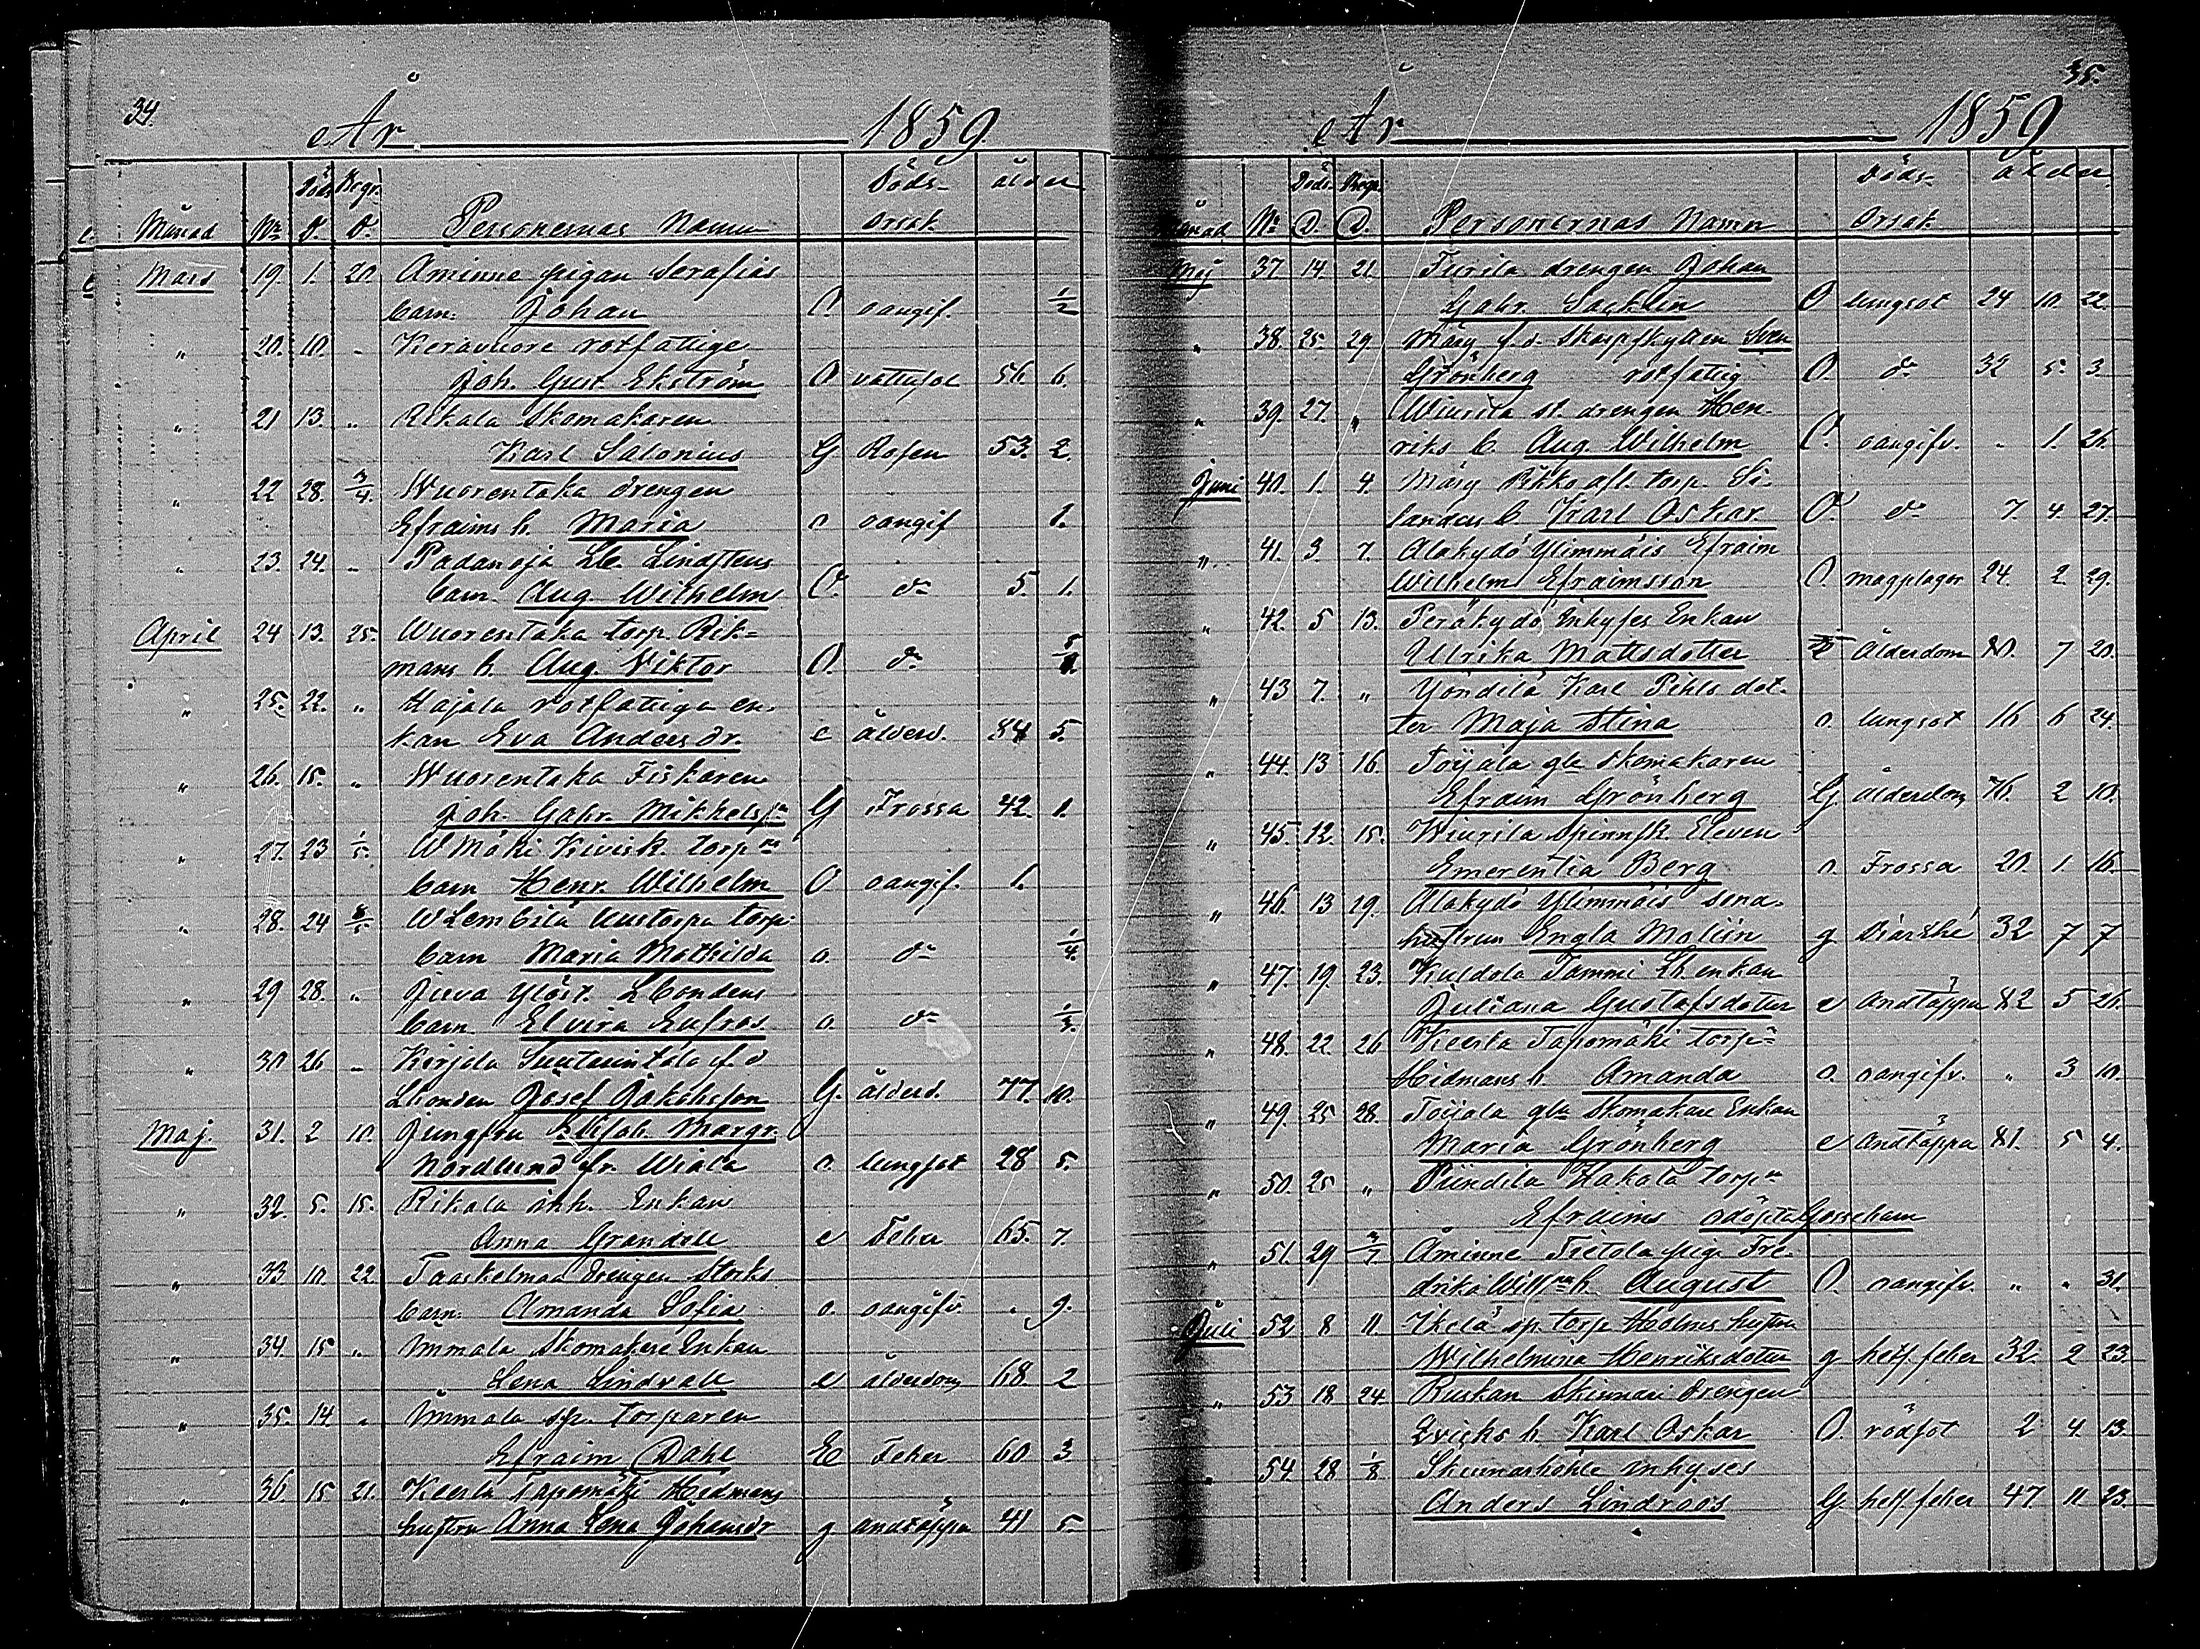 34.
År 1859.
Döds Begr. Döds- ålder
Månad No D. D. Personernas Namn orsak
Mars 19. 1. 20. Åminne pigan Serafias
barn: Johan O oangif. 1/2
" 20. 10. " Keravuore rotfattige
Joh. Gust. Ekström O vattusot 56. 6.
" 21 13. " Rikala Skomakaren
Karl Salonius G Rosen 53. 2.
" 22 28. 3/4. Wuorentaka drengen
Efraims b. Maria o oangif 1.
" 23. 24. " Padanoja Lb. Lindstens
barn. Aug. Wilhelm O. do 5. 1.
April 24 13. 25. Wuorentaka torp. Rik=
mans b. Aug. Viktor O. do
" 25. 22. " Hajala rotfattiga en-
kan Eva Andersdr. e ålderd. 84 5.
" 26. 15. " Wuorentaka Fiskaren
Joh. Gabr. Mikkelss:n G Frossa 42. 1.
" 27. 23 1/5. WMäki Kivisk. torp:rs
barn Henr. Wilhelm O oangif. 1.
" 28. 24 WLembilä Uustorpa torp:
barn Maria Mathilda o. do 1/4.
" 29 28. " Juva Ylöst. Lbondens
barn Elvira Eufros. o. do 1/3.
" 30 26 " Kärjola f.d
Lbonden Josef Jakobsson G. ålderd. 77. 10.
Maj. 31. 2 10. Jungfru Elisab. Margr.
Nordlund fr. Wiala o. lungsot 28 5.
" 32. 5. 15. Rikala inh. Enkan
Anna Grandell e Feber 65. 7.
" 33 10. 22. drengen Storks
barn. Amanda Sofia o. oangifv. " 9.
" 34. 15 " Immala Skomakare Enkan
Lena Lindvall e ålderdom 68. 2
" 35. 14. " Immala sp. torparen
Efraim Dahl E Feber 60 3
" 36. 15 21. Keerla Tapomäki Hedmans
hustru Anna Lena Johansdr g andtäppa 41 5.
35.
År 1859
Döds Begr. Döds- ålder.
Månad No D. D. Personernas Namn Orsak
Maj 37 14 21 Furila drengen Johan
Gabr. Sacklin O lungsot 24 10 22.
" 38. 25. 29. Märy f.d. Skarpskytten Sven
Grönberg rotfattig O. do 32 5. 3.
" 39. 27. " Wiurila st. drengen Hen-
riks b. Aug. Wilhelm O. oangifv. " 1. 26.
Juni 40. 1. 4. Märy afl. torp. Se-
landers b. Karl Oskar. O. do 7. 4. 27.
" 41. 3 7. Alakydö Ylimmäis Efraim
Wilhelm Efraimsson O. magplågor 24. 2 29.
" 42. 5 13. Peräkydö Inhyses Enkan
Ullrika Mattsdotter Ålderdom 80. 7 20.
" 43 7. " Yöndilä Karl Pihls dot-
ter Maja Stina o. lungsot 16 6 24.
" 44. 13 16. Toijala gla Skomakaren
Efraim Grönberg G. ålderdom 76. 2 10.
" 45. 12. 15. Wiurila Spinnsk. Eleven
Emerentia Berg o. Frossa 20. 1. 16.
" 46. 13 19. Alakydö Ylimmäis sona-
hustrun Engla Moliin g Diarrhé 32 7 7
" 47. 19 23. Kuldola Tammi Lb. enkan
Juliana Gustafsdotter e Andtäppa 82 5 26.
" 48. 22. 26 Keerla Tapomäki torp:
Hedmans b. Amanda o. oangifv. " 3 10.
" 49. 25 28. Toijala gla Skomakare Enkan
Maria Grönberg e Andtäppa 81. 5 4.
" 50. 25 " Piindilä Hakala torp:n
Efraims odöpta Gossebarn
" 51. 29 3/7 Åminne Tietola pig. Fre-
drika Will:ns b. August O. oangifv. " " 31.
Juli 52 8 11. Ikelä sp. torp. Holms hustru
Wilhelmina Henriksdotter g hets. feber 32. 2 23.
" 53. 18 24. Ruskan Skinnari drengen
Ericks b. Karl Oskar O. rödsot 2 4. 13.
" 54. 28 1/8 inhyses
Anders Lindroos G hets. feber 47. 11 23.